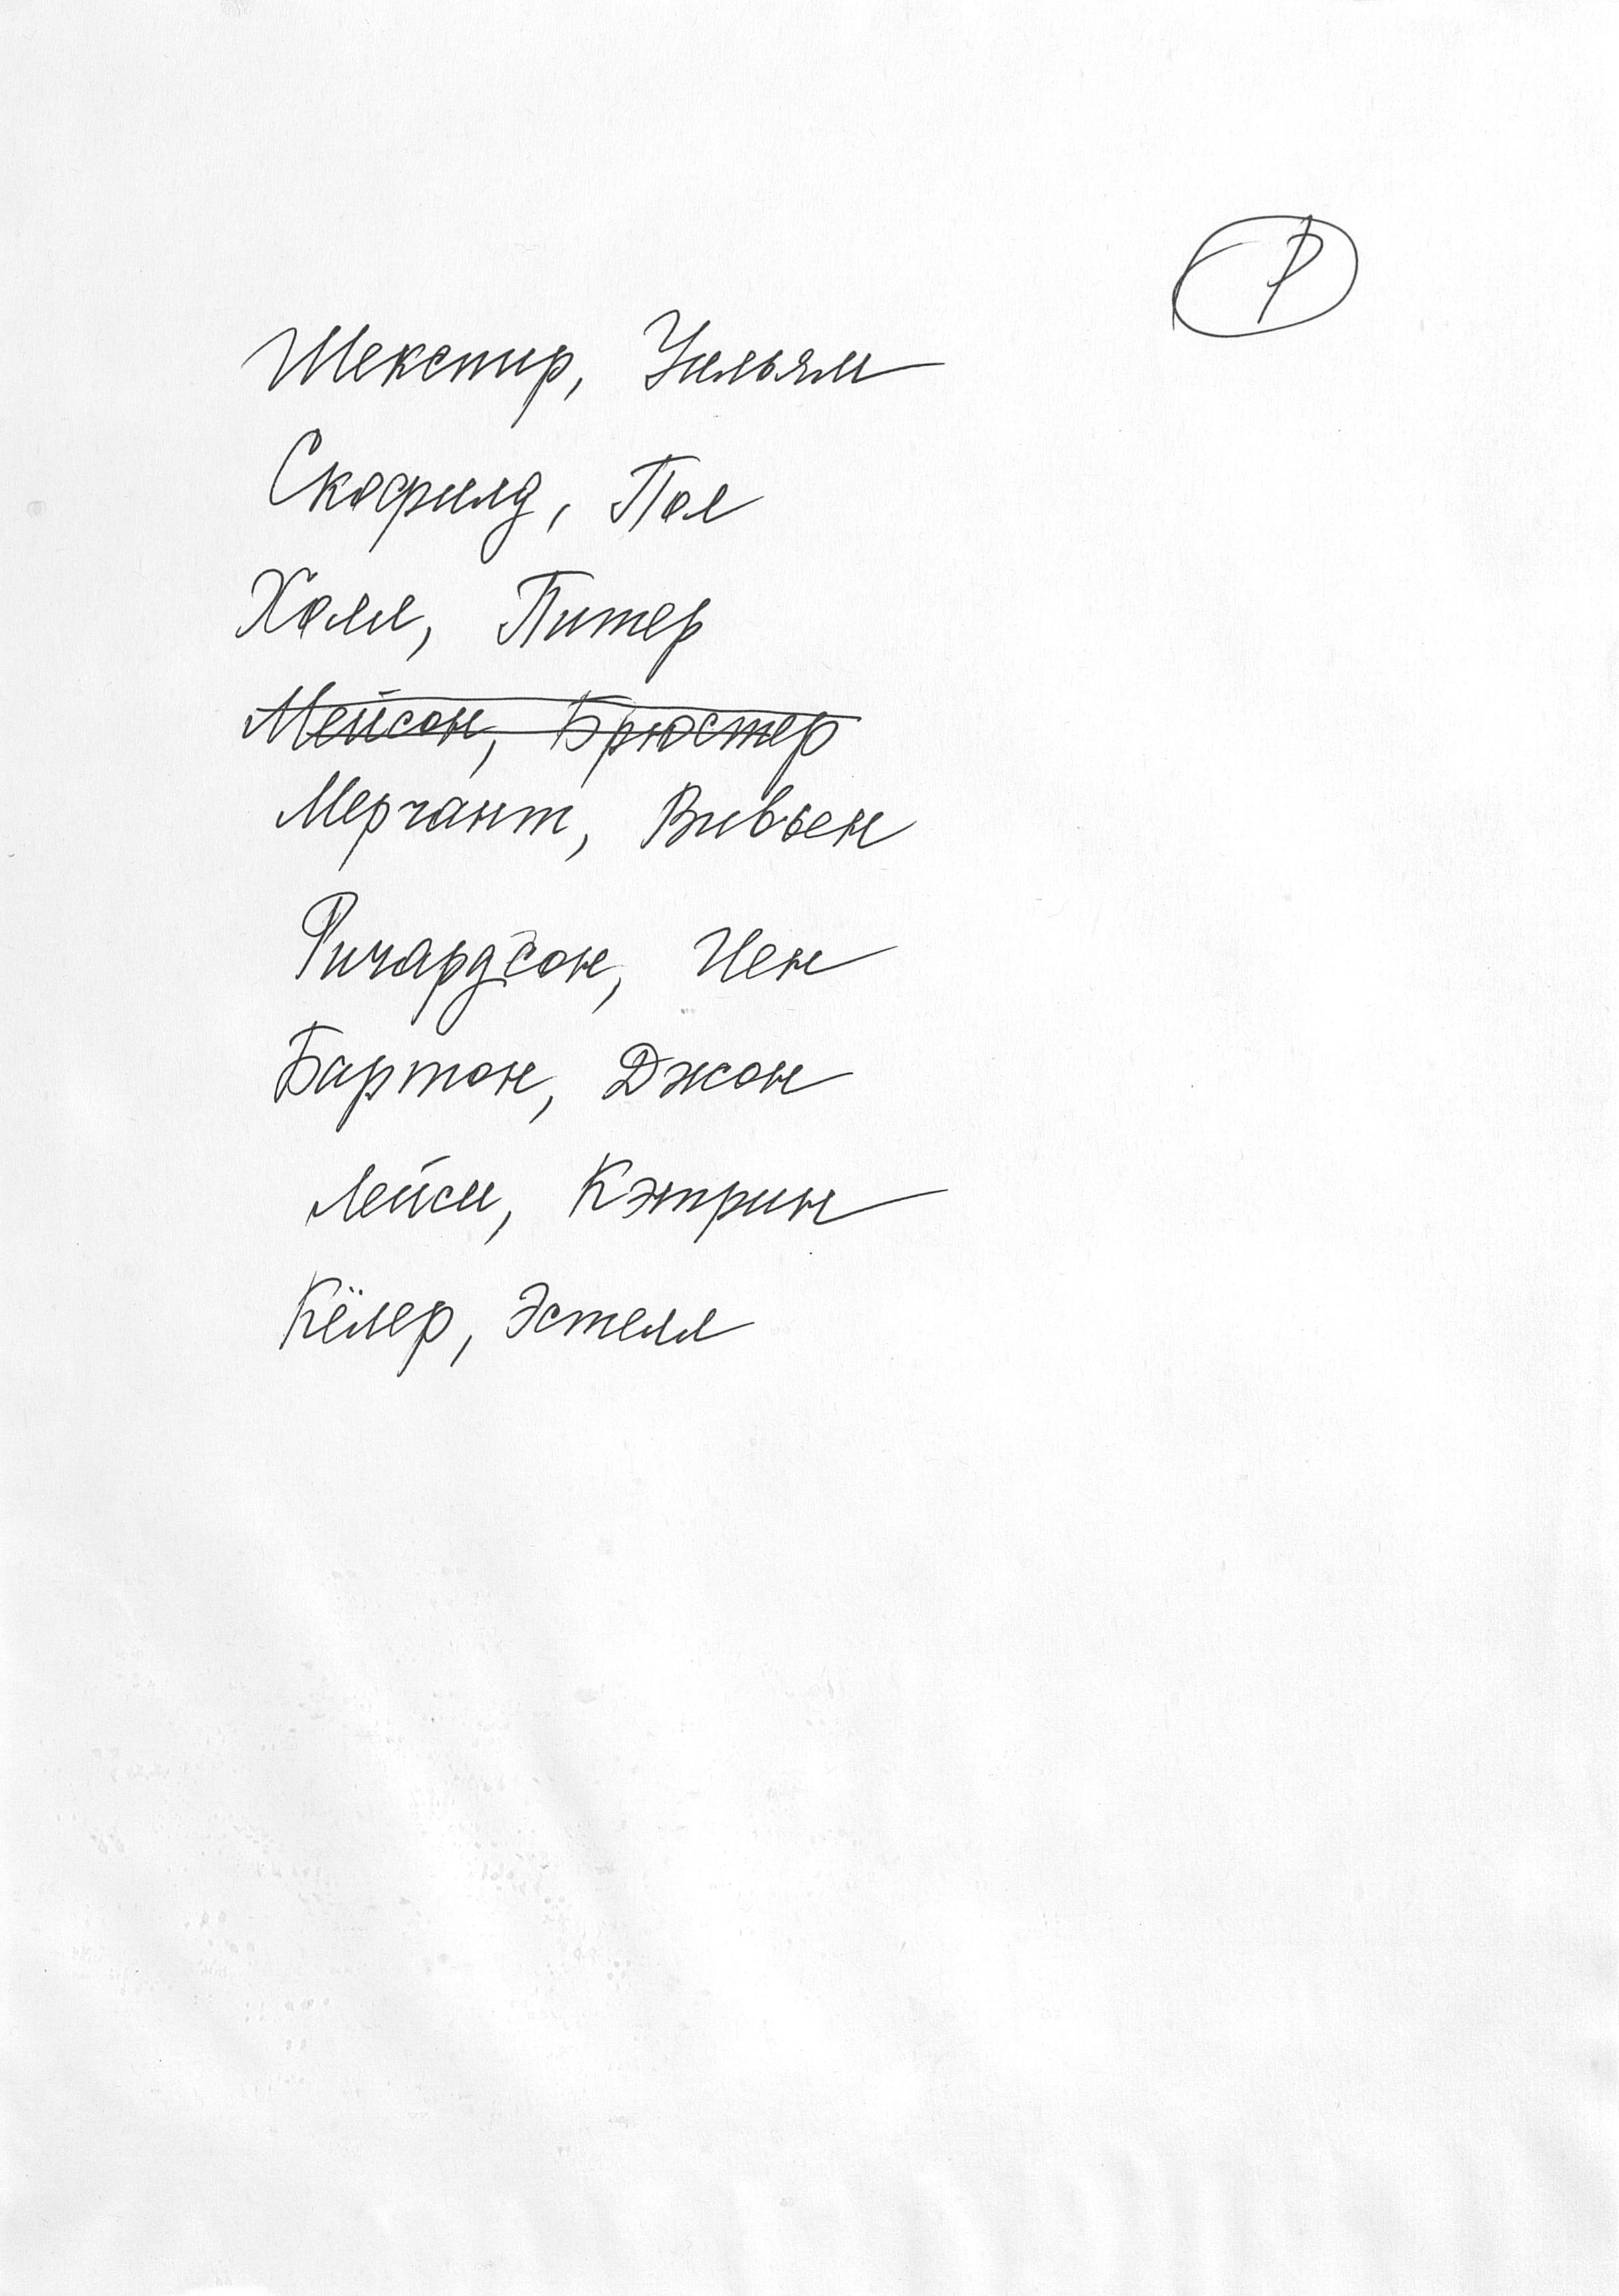 Р
Шекспир, Уильям
Скофилд, Пол
Холл, Питер
Мейсон, Брюстер
Мерчант, Вивьен
Ричардсон, Иен
Бартон, Джон
Лейси, Кэтрин
Кёлер, Эстелл